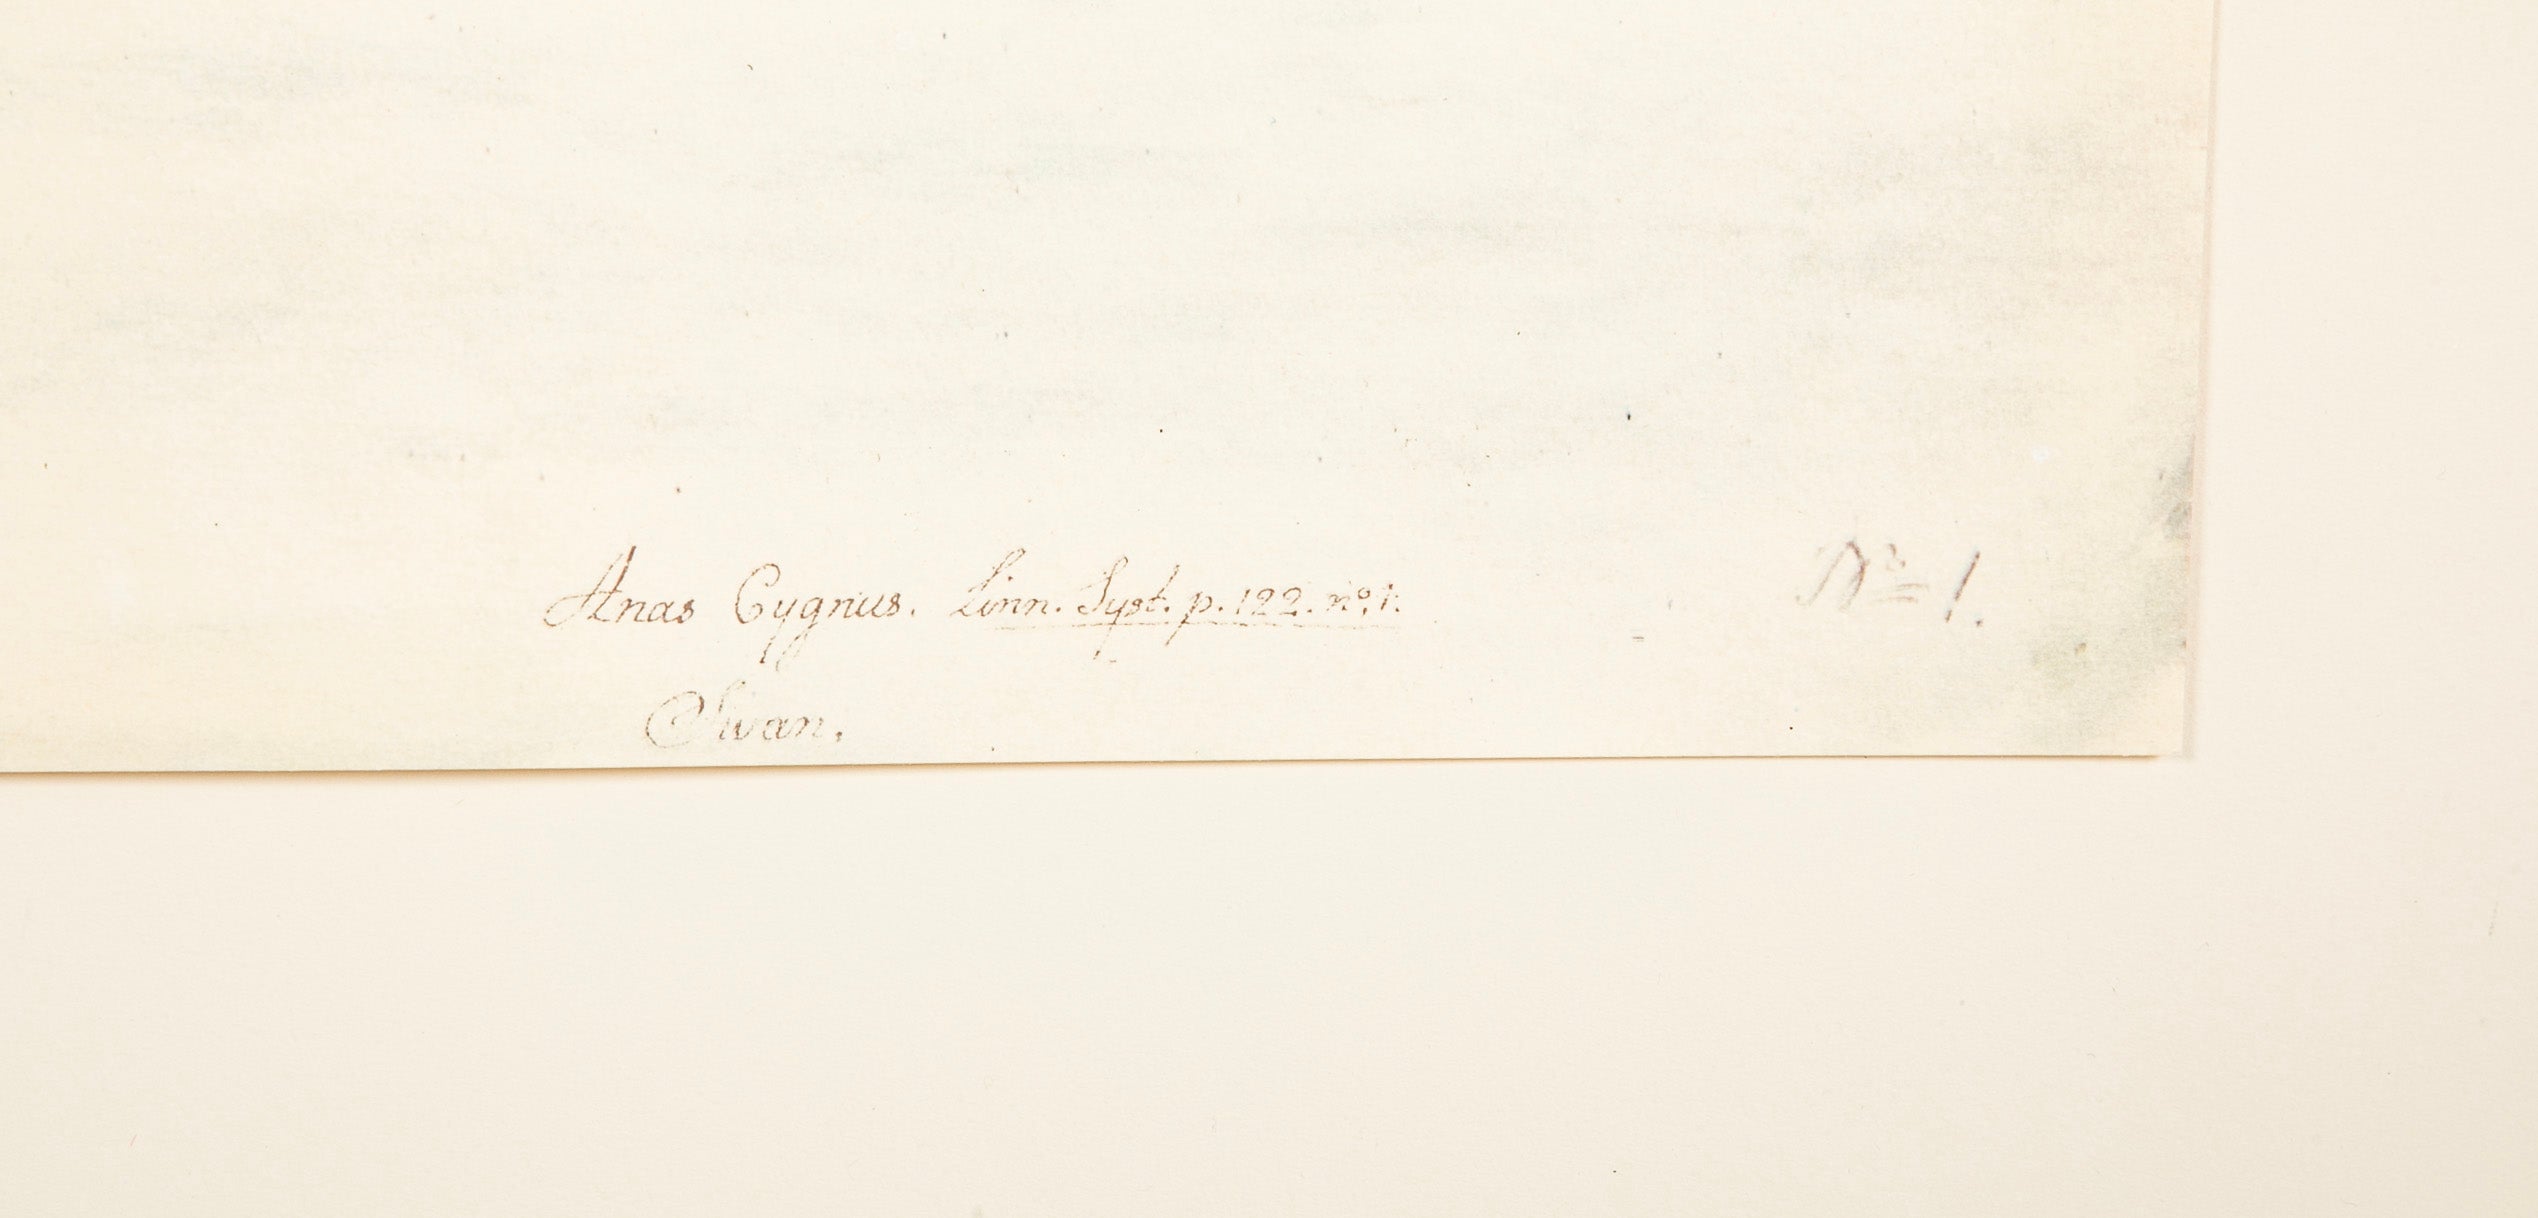 Anas Cygnus. Linn. Syst. p. 122. nº. 1. Nº 1.
Swan.